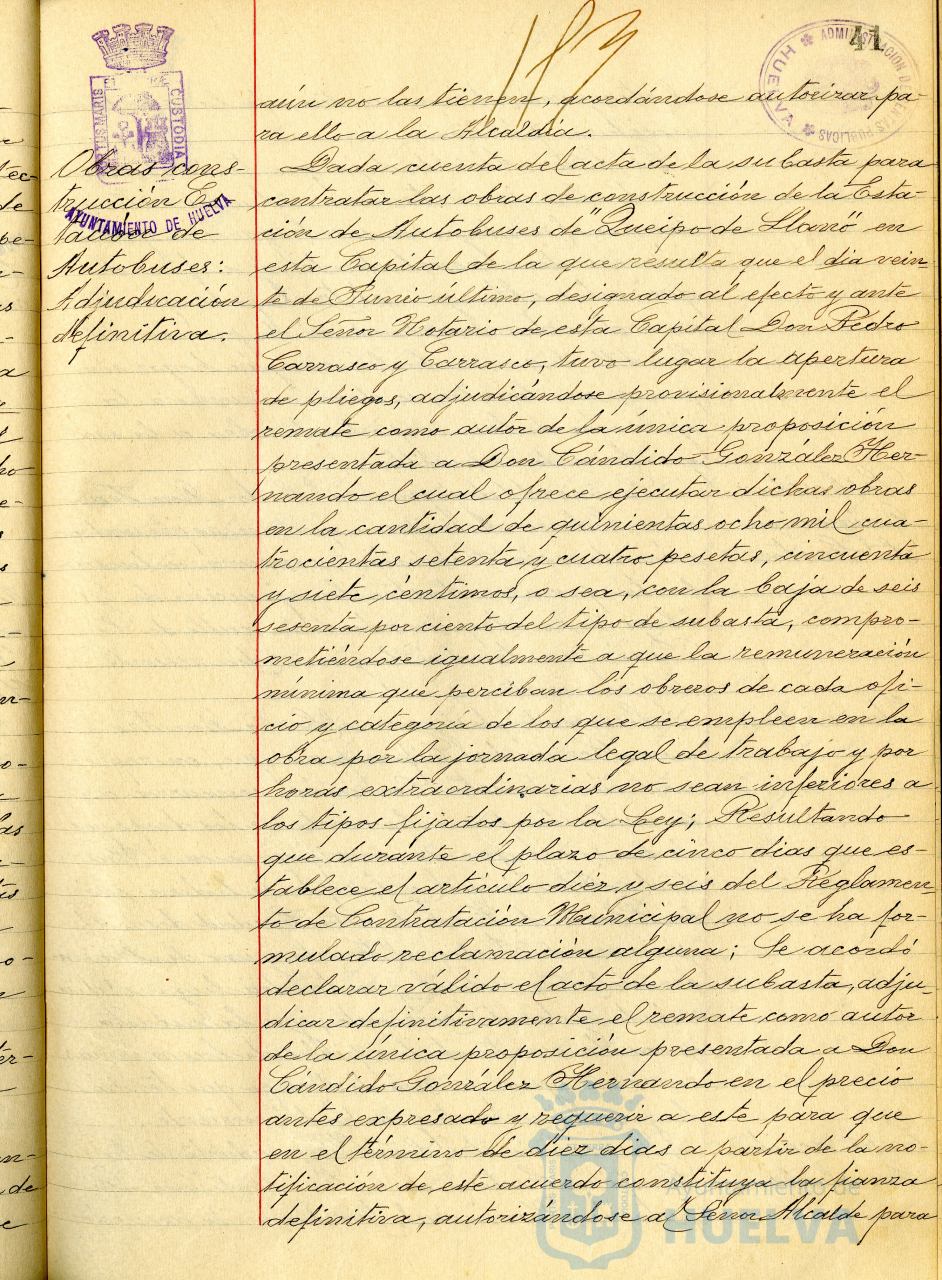 183
41
ADMINISTRACION DE
PUBLICAS
HUELVA
CUSTODIA
MARIS
AYUNTAMIENTO DE HUELVA
Obras cons-
trucción Es-
tación de
Autobuses:
Adjudicación
definitiva.
aún no las tienen, acordándose autorizar pa-
ra ello a la Alcaldía.
Dada cuenta del acta de la subasta para
contratar las obras de construcción de la Esta-
ción de Autobuses de "Queipo de Llano" en
esta Capital de la que resulta que el día vein-
te de Junio último, designado al efecto y ante
el Señor Notario de esta Capital Don Pedro
Carrasco y Carrasco, tuvo lugar la apertura
de pliegos, adjudicándose provisionalmente el
remate como autor de la única proposición
presentada a Don Cándido González Her-
nando el cual ofrece ejecutar dichas obras
en la cantidad de quinientas ocho mil cua-
trocientas setenta y cuatro pesetas, cincuenta
y siete céntimos, o sea, con la baja de seis
sesenta por ciento del tipo de subasta, compro-
metiéndose igualmente a que la remuneración
mínima que perciban los obreros de cada ofi-
cio y categoría de los que se empleen en la
obra por la jornada legal de trabajo y por
horas extraordinarias no sean inferiores a
los tipos fijados por la Ley; Resultando
que durante el plazo de cinco días que es-
tablece el artículo diez y seis del Reglamen-
to de Contratación Municipal no se ha for-
mulado reclamación alguna; Se acordó
declarar válido el acto de la subasta, adju-
dicar definitivamente el remate como autor
de la única proposición presentada a Don
Cándido González Hernando en el precio
antes expresado y requerir a este para que
en el término de diez días a partir de la no-
tificación de este acuerdo constituya la fianza
definitiva, autorizándose al Señor Alcalde para
Ayuntamiento de
HUELVA